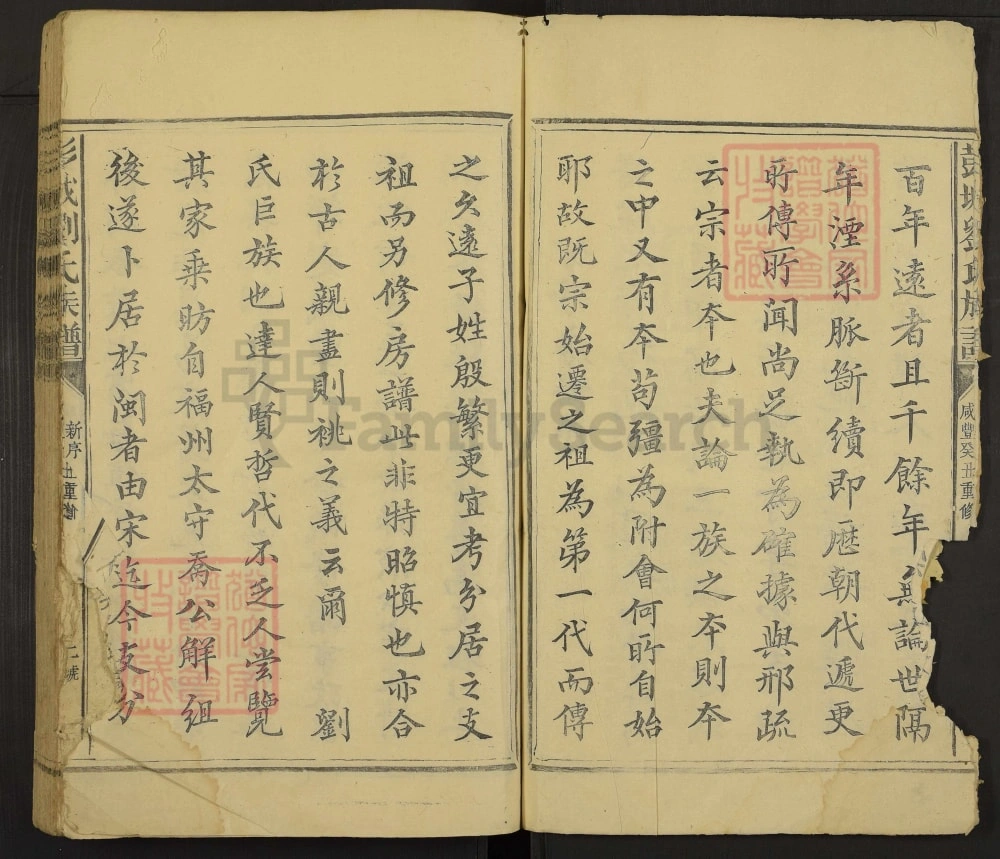 百年遠者且千餘年無論世隔
年湮系脈斷續即歷朝代遞更
所傳所聞尚足執為確據與邢疏
云宗者夲也夫論一族之夲則夲
之中又有夲苟彊為附會何所自始
耶故既宗始遷之祖為第一代而傳
之久遠子姓殷繁更宜考分居之支
祖而另修房譜此非特昭慎也亦合
於古人親盡則祧之義云爾 劉
氏巨族也達人賢哲代不乏人嘗覽
其家乗昉自福州太守喬公解組
後遂卜居於閩者由宋迄今支分
彭城劉氏族譜
咸豐癸丑重修
彭城劉氏族譜
新序
丑重修
FamilySearch